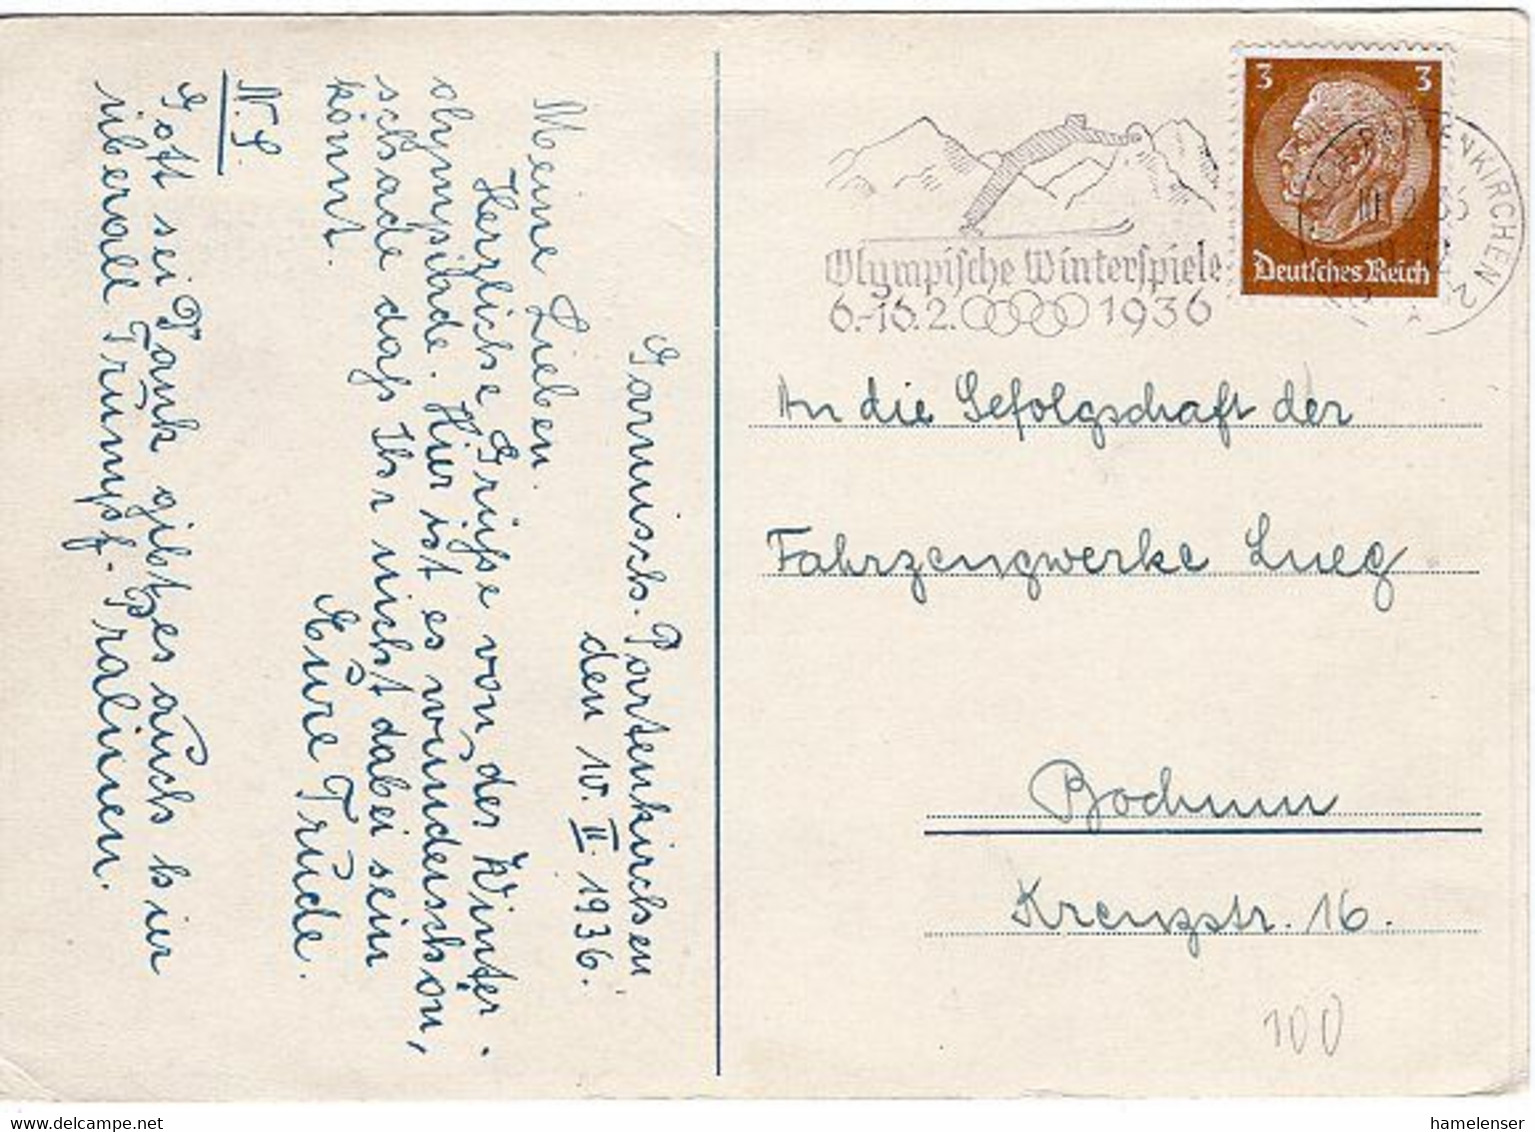 Garmisch-Partenkirchen
den 10. II. 1936.
Meine Lieben.
Herzliche Grüße von der Winter-
olympiade. Hier ist es wunderschön,
schade dass Ihr nicht dabei sein
könnt.
Eure Trude.
N.S.
Gott sei Dank gibt es auch hier
überall Trumpf-Pralinen.
3 3
Deutsches Reich
Olympische Winterspiele
6.-16.2. 1936
PARTENKIRCHEN 2
An die Gefolgschaft der
Fahrzeugwerke Lueg
Bochum
Kreuzstr. 16.
100
hamelenser